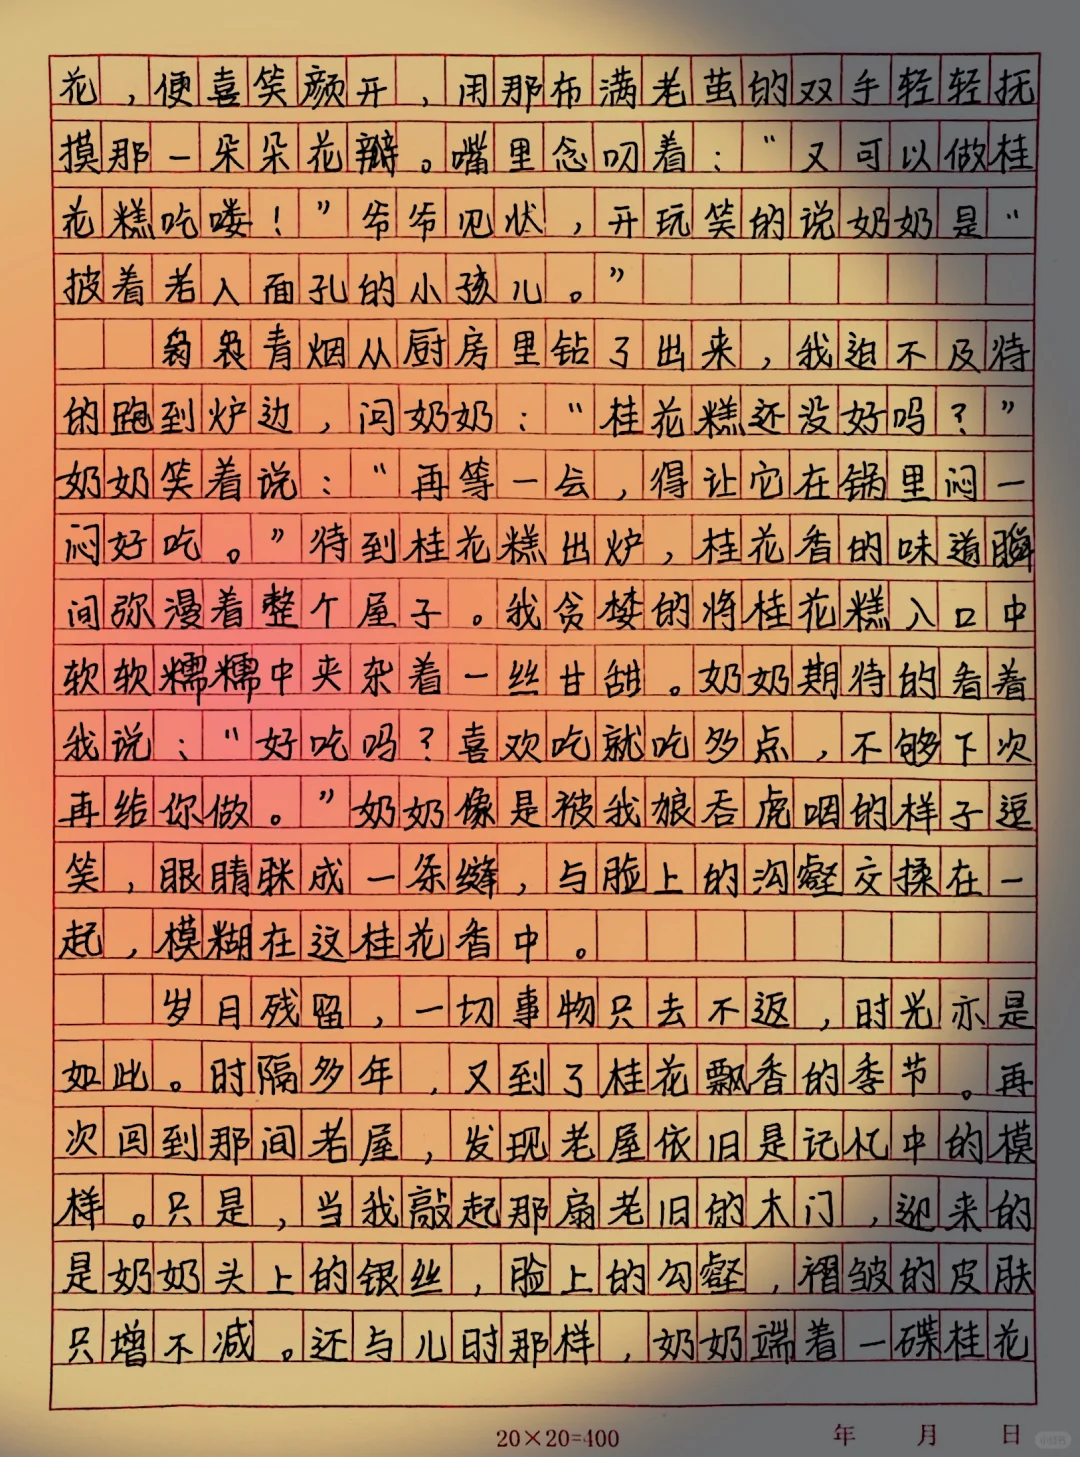 花，便喜笑颜开，用那布满老茧的双手轻轻抚
摸那一朵朵花瓣。嘴里念叨着：“又可以做桂
花糕吃喽！”爷爷见状，开玩笑的说奶奶是“
披着老人面孔的小孩儿。”
袅袅青烟从厨房里钻了出来，我迫不及待
的跑到炉边，问奶奶：“桂花糕还没好吗？”
奶奶笑着说：“再等一会，得让它在锅里闷一
闷好吃。”待到桂花糕出炉，桂花香的味道瞬
间弥漫着整个屋子。我贪婪的将桂花糕入口中
软软糯糯中夹杂着一丝甘甜。奶奶期待的看着
我说：“好吃吗？喜欢吃就吃多点，不够下次
再给你做。”奶奶像是被我狼吞虎咽的样子逗
笑，眼睛眯成一条缝，与脸上的沟壑交揉在一
起，模糊在这桂花香中。
岁月残留，一切事物只去不返，时光亦是
如此。时隔多年，又到了桂花飘香的季节。再
次回到那间老屋，发现老屋依旧是记忆中的模
样。只是，当我敲起那扇老旧的木门，迎来的
是奶奶头上的银丝，脸上的勾壑，褶皱的皮肤
只增不减。还与儿时那样，奶奶端着一碟桂花
20×20=400 年 月 日
小红书